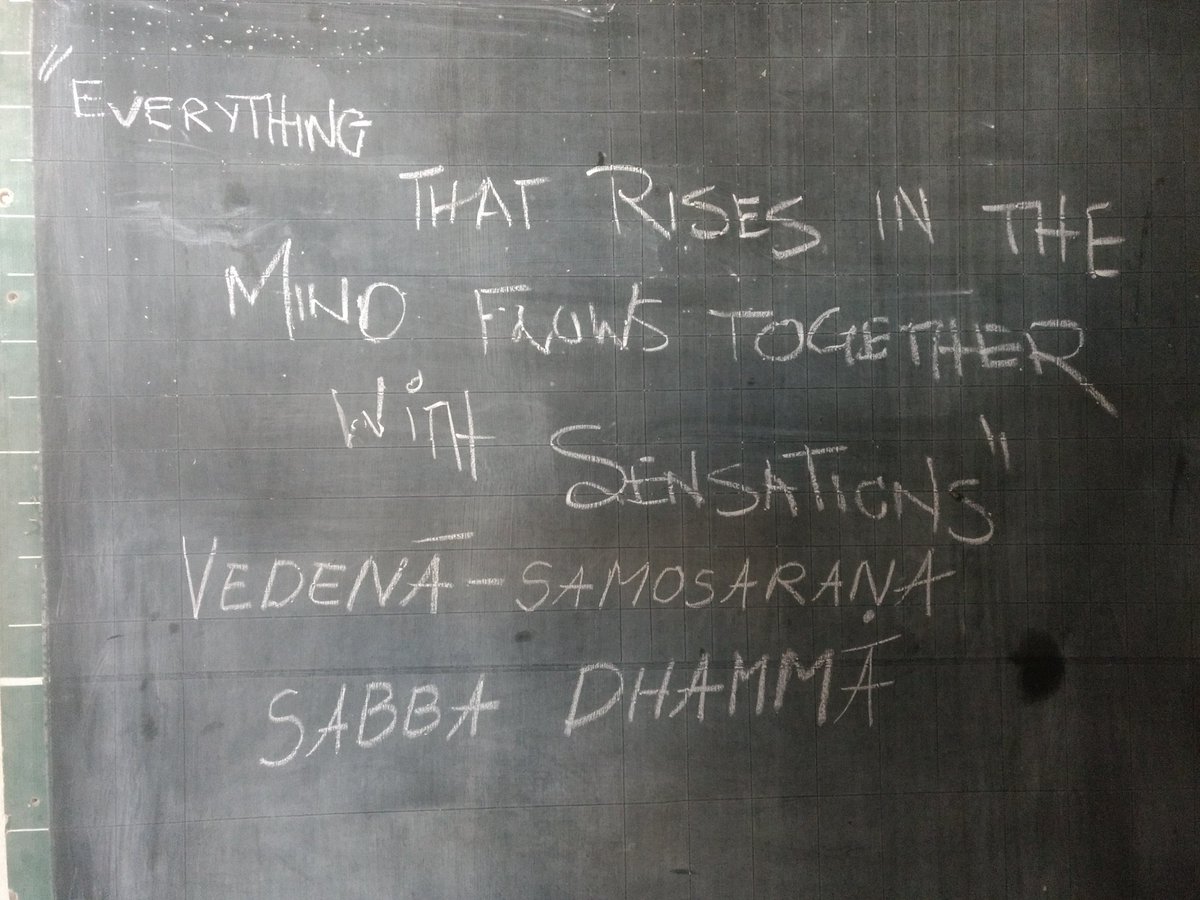 "EVERYTHING
THAT RISES IN THE
MIND FLOWS TOGETHER
WITH SENSATIONS"
VEDENĀ-SAMOSARAṆA
SABBA DHAMMĀ